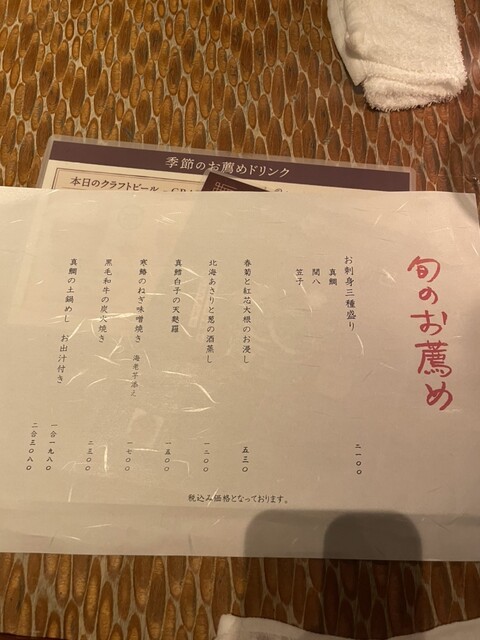 季節のお薦めドリンク
本日のクラフトビール
旬のお薦め
お刺身三種盛り
真鯛
間八
笠子
二一〇〇
春菊と紅芯大根のお浸し
五三〇
北海あさりと葱の酒蒸し
一二〇〇
真鱈白子の天麩羅
一五〇〇
寒鰆のねぎ味噌焼き 海老芋添え
一七〇〇
黒毛和牛の炭火焼き
二三〇〇
真鯛の土鍋めし お出汁付き
一合一九八〇
二合三〇八〇
税込み価格となっております。